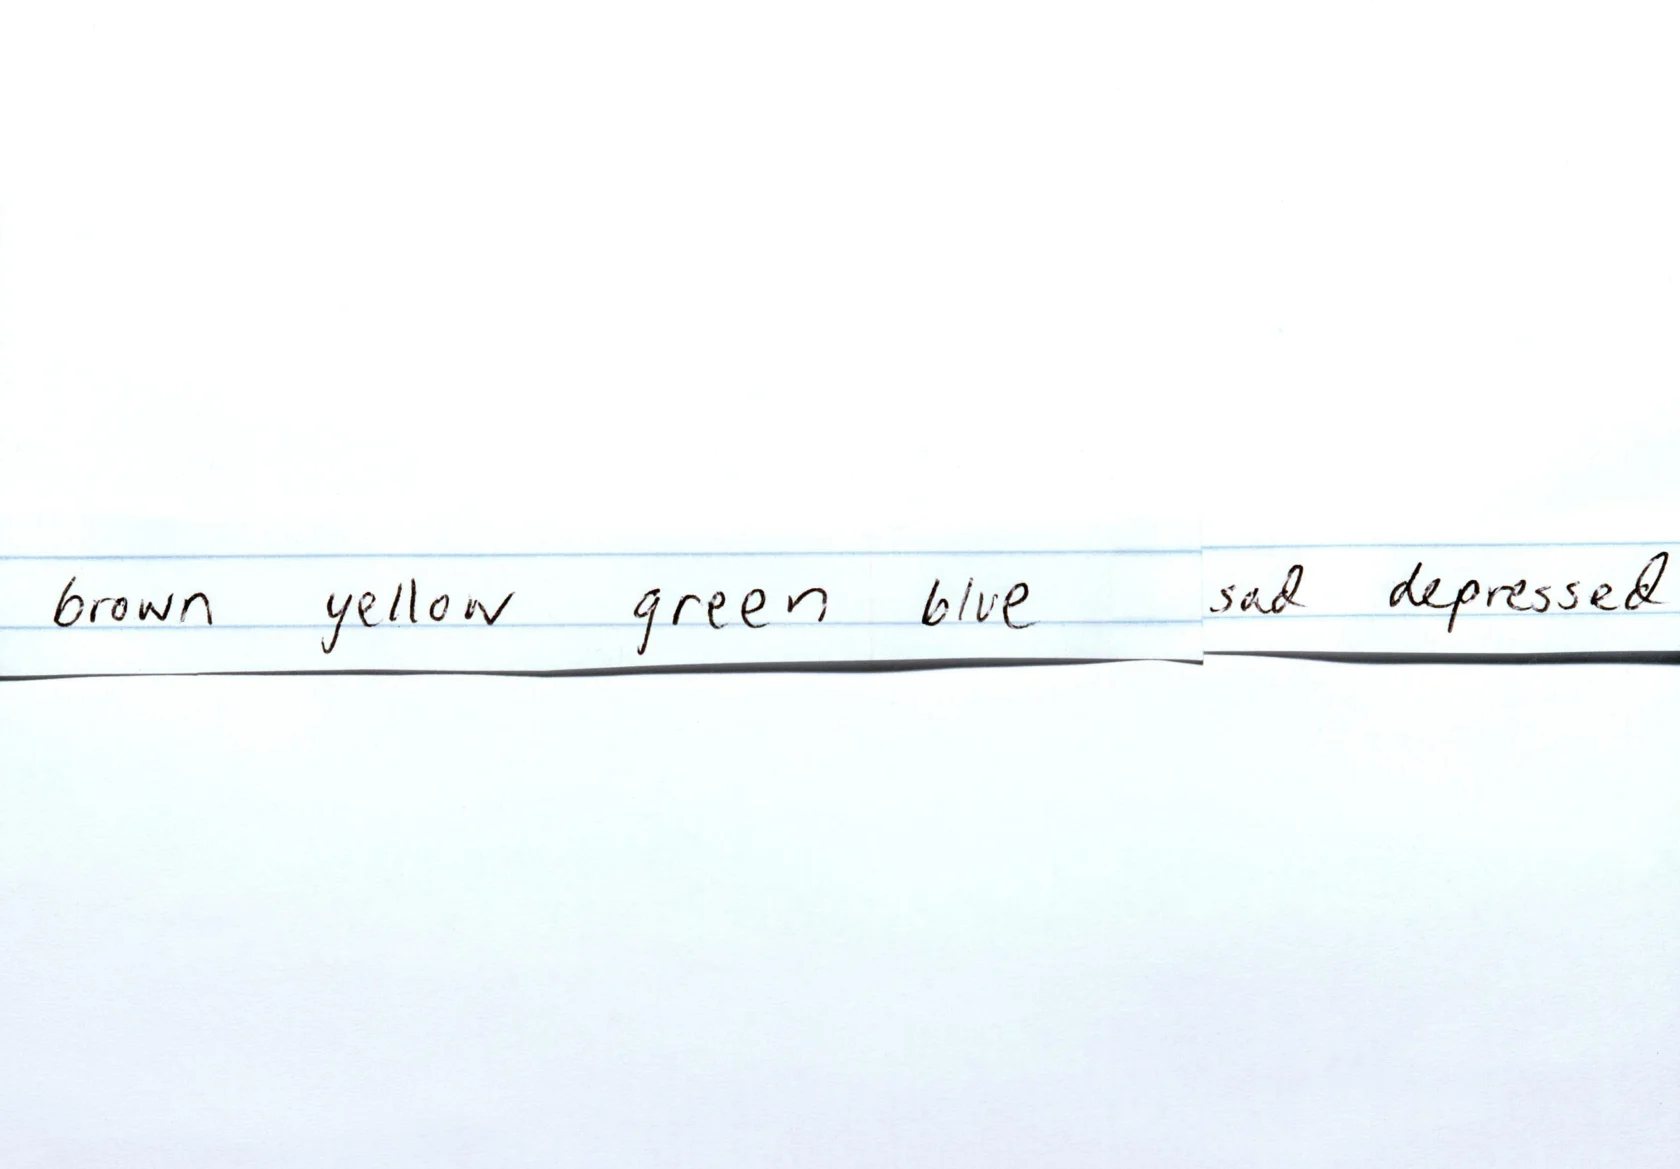 brown yellow green blue sad depressed